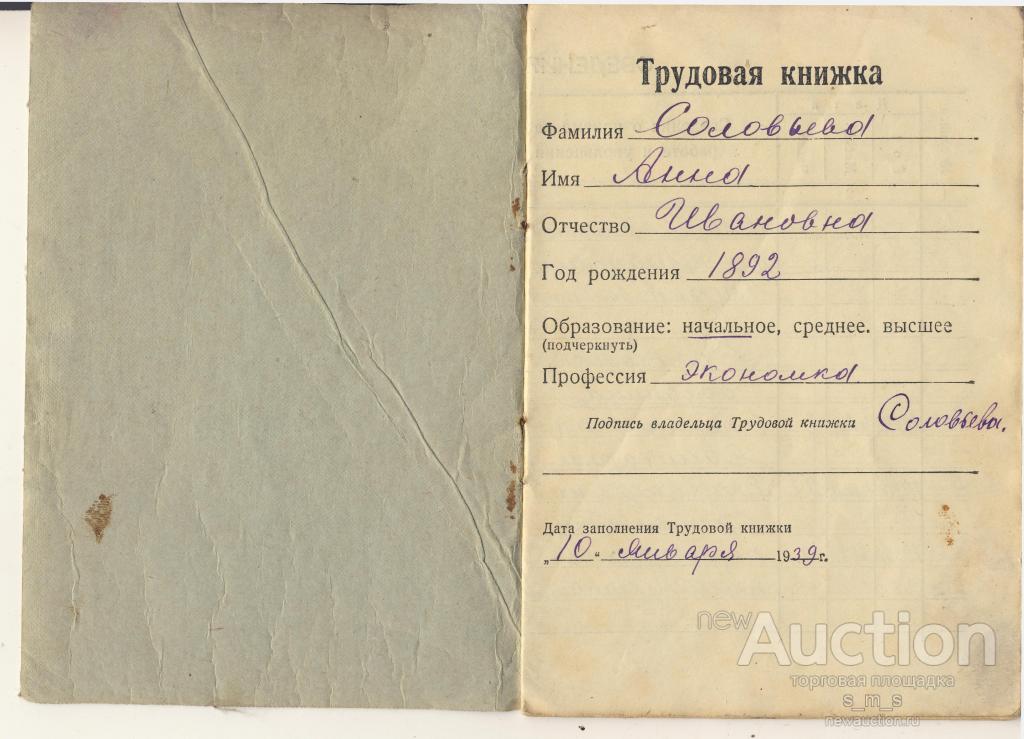 Трудовая книжка
Фамилия Соловьева
Имя Анна
Отчество Ивановна
Год рождения 1892
Образование: начальное, среднее. высшее
(подчеркнуть)
Профессия экономка
Подпись владельца Трудовой книжки Соловьева.
Дата заполнения Трудовой книжки
„10“ января 1939г.
newAuction
торговая площадка
s_m_s
newauction.ru